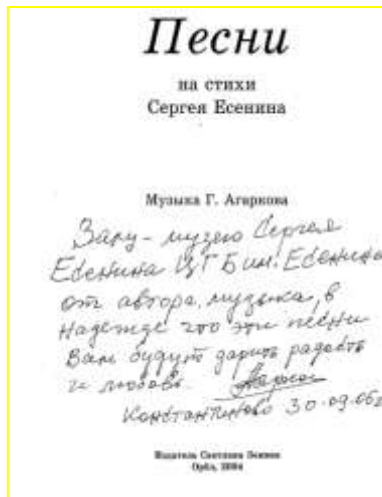 Песни
на стихи
Сергея Есенина
Музыка Г. Агаркова
Залу-музею Сергея
Есенина ЦГБ им. Есенина
от автора, музыка, в
надежде что эти песни
Вам будут дарить радость
и любовь.
Константиново 30.09.05г
Издатель Светлана Зенина
Орёл, 2004